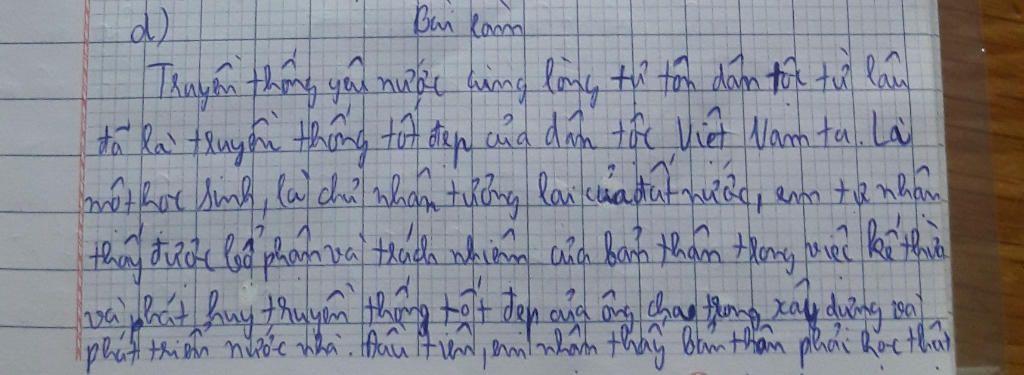 d) Bài làm
Truyền thống yêu nước cùng lòng tự tôn dân tộc từ lâu
đã là truyền thống tốt đẹp của dân tộc Việt Nam ta. Là
một học sinh, là chủ nhân tương lai của đất nước, em tự nhận
thấy được bổ phận và trách nhiệm của bản thân trong việc kế thừa
và phát huy truyền thống tốt đẹp của ông cha trong xây dựng và
phát triển nước nhà. Đầu tiên, em nhận thấy bản thân phải học thật